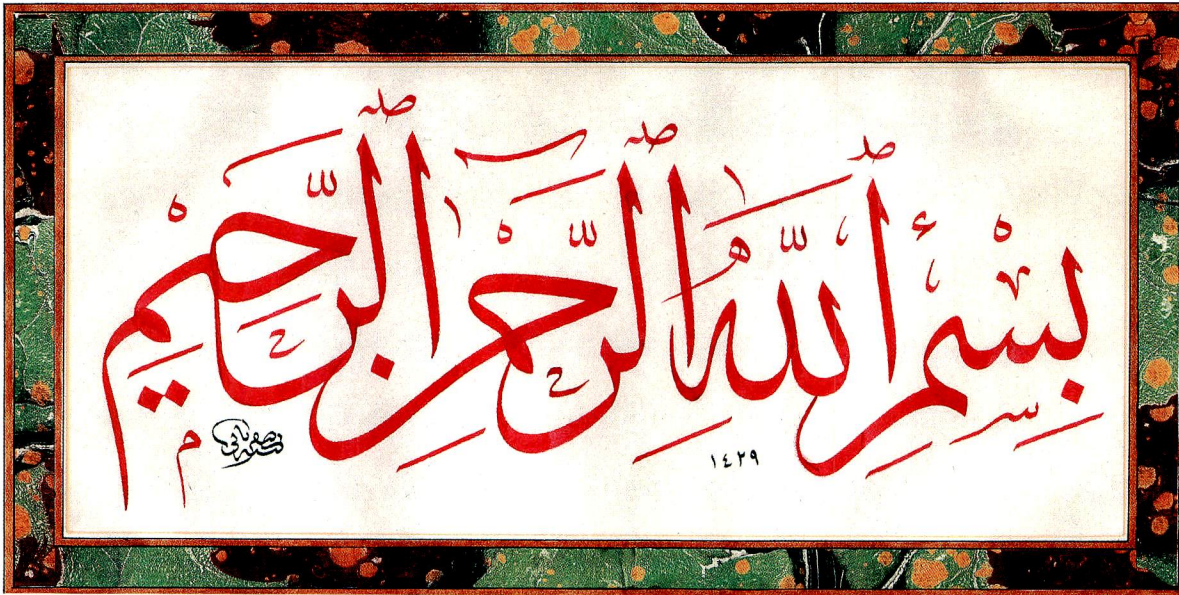 بِسْمِ ٱللَّهِ ٱلرَّحْمَٰنِ ٱلرَّحِيمِ
١٤٢٩